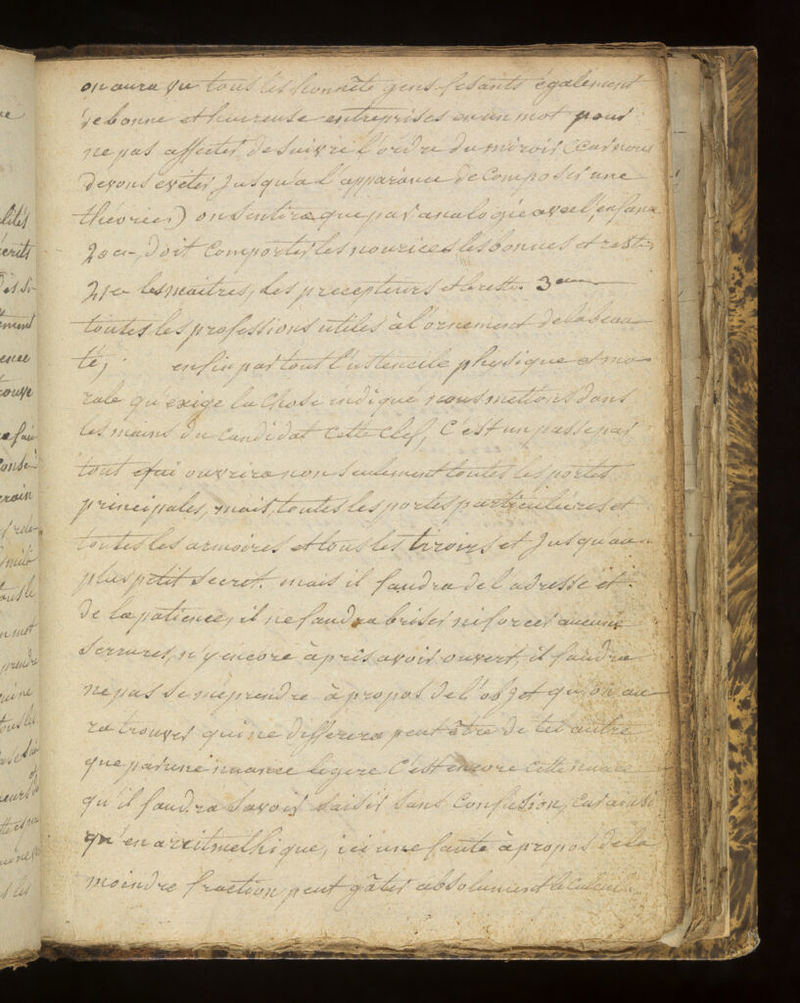 on aura vu tous les honnête gens fesants également
de bonne et heureuse entreprises en un mot pour
ne pas affecter de suivre l'ordre du miroir (car nous
devons eviter jusqu'a l'apparance de composer une
théoriee) on sentira que par analogie avec l'enfance
doit comporter les nourices les bonnes et reste
les maitres, les precepteurs et le reste. 3em
toutes les professions utiles à l'ornement de la beau
té; enfin par tout l'ustencile physique et mo
rale qu'exige la chose indiqué nous mettons dans
les mains du candidat cette clef, C'est un passe par
tout qui ouvrira non seulement toutes les portes
principales, mais, toutes les portes particulières et
toutes les armoires et tous les tiroirs et jusqu'au
plus petit secret. mais il faudra de l'adresse et
de la patience, il ne faudra briser ni forcer aucune
serrures, n'y encore après avoir ouvert, il faudra
ne pas se meprendre à propos de l'objet qu'on au
ra trouver qui ne differera peut être de tel autre
que par une nuance legere C'est encore cette nuance
qu'il faudra savoir saisir sans confusion, car ainsi
qu'en aritmethique, ici une faute à propos de la
moindre fraction peut gâter absolument le calcul